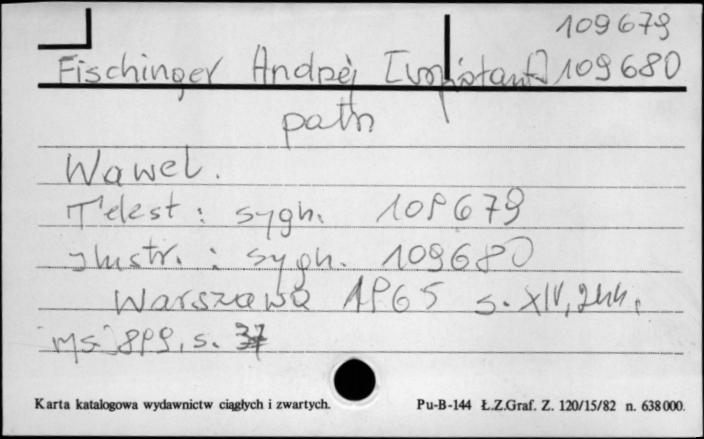 109679
Fischinger Andrzej [współaut.] 109680
patrz
Wawel.
Tekst: sygn. 109679
Ilustr.: sygn. 109680
Warszawa 1965 s. XIV, 244,
s. 37
Karta katalogowa wydawnictw ciągłych i zwartych.
Pu-B-144 Ł.Z.Graf. Z. 120/15/82 n. 638000.